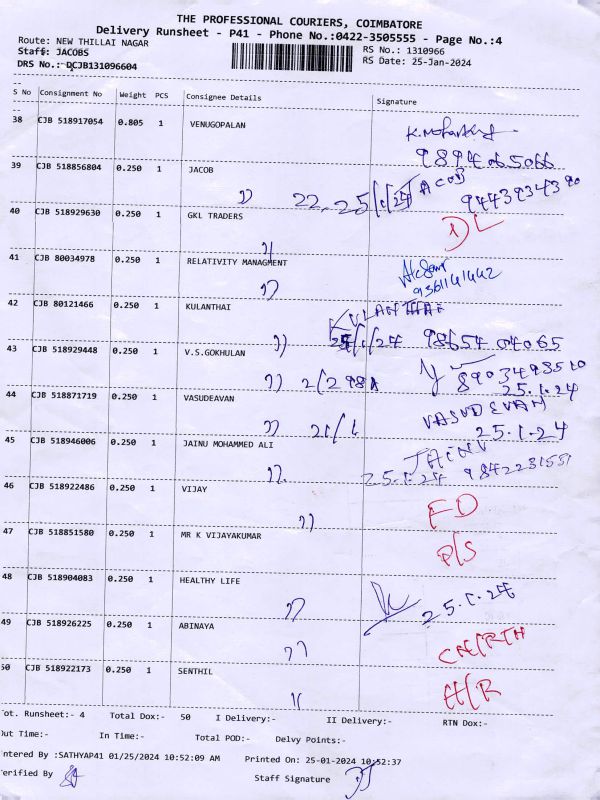 THE PROFESSIONAL COURIERS, COIMBATORE
Delivery Runsheet - P41 - Phone No.:0422-3505555 - Page No.:4
Route: NEW THILLAI NAGAR RS No.: 1310966
Staff: JACOBS RS Date: 25-Jan-2024
DRS No.: DCJB131096604
S No Consignment No Weight PCS Consignee Details Signature
38 CJB 518917054 0.805 1 VENUGOPALAN
9894065066
39 CJB 518856804 0.250 1 JACOB JACOB
22, 25/1/24 9443934390
40 CJB 518929630 0.250 1 GKL TRADERS DL
41 CJB 80034978 0.250 1 RELATIVITY MANAGMENT
9361141442
42 CJB 80121466 0.250 1 KULANTHAI KULANTHAI
25/1/24 98654 04065
43 CJB 518929448 0.250 1 V.S.GOKHULAN 8903498510
2/298A 25.1.24
44 CJB 518871719 0.250 1 VASUDEAVAN VASUDEVAN
25.1.24
45 CJB 518946006 0.250 1 JAINU MOHAMMED ALI JAINU
25.1.24 9842231551
46 CJB 518922486 0.250 1 VIJAY
47 CJB 518851580 0.250 1 MR K VIJAYAKUMAR P/S
48 CJB 518904083 0.250 1 HEALTHY LIFE 25.1.24
49 CJB 518926225 0.250 1 ABINAYA
50 CJB 518922173 0.250 1 SENTHIL H/R
ot. Runsheet:- 4 Total Dox:- 50 I Delivery:- II Delivery:- RTN Dox:-
ut Time:- In Time:- Total POD:- Delvy Points:-
ntered By :SATHYAP41 01/25/2024 10:52:09 AM Printed On: 25-01-2024 10:52:37
erified By Staff Signature